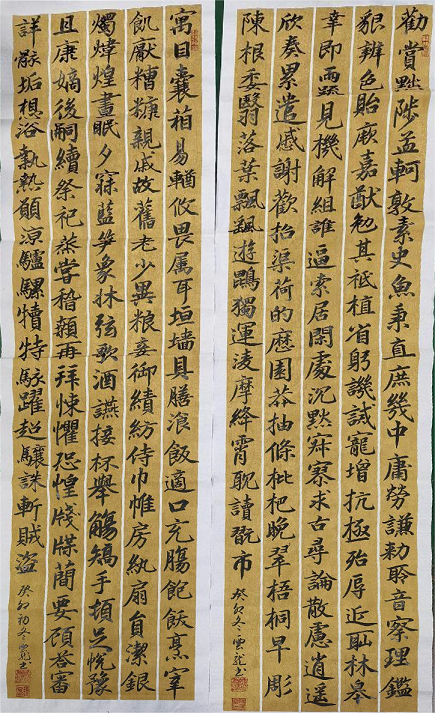 勸賞黜陟孟軻敦素史魚秉直庶幾中庸勞謙勑聆音察理鑑
貌辨色貽厥嘉猷勉其祗植省躬譏誡寵增抗極殆辱近耻林皋
幸即兩疏見機解組誰逼索居閑處沉默寂寥求古尋論散慮逍遙
欣奏累遣慼謝歡招渠荷的歷園莽抽條枇杷晚翠梧桐早彫
陳根委翳落葉飄颻遊鵾獨運凌摩絳霄耽讀翫市 癸卯冬雲書
寓目囊箱易輶攸畏属耳垣墻具膳飡飯適口充腸飽飫烹宰
飢厭糟糠親戚故舊老少異粮妾御績紡侍巾帷房紈扇員潔銀
燭煒煌晝眠夕寐藍笋象牀弦歌酒讌接杯舉觴矯手頓足悅豫
且康嫡後嗣續祭祀蒸嘗稽顙再拜悚懼恐惶牋牒簡要顧答審
詳骸垢想浴執熱願涼驢騾犢特駭躍超驤誅斬賊盜 癸卯初冬雲書